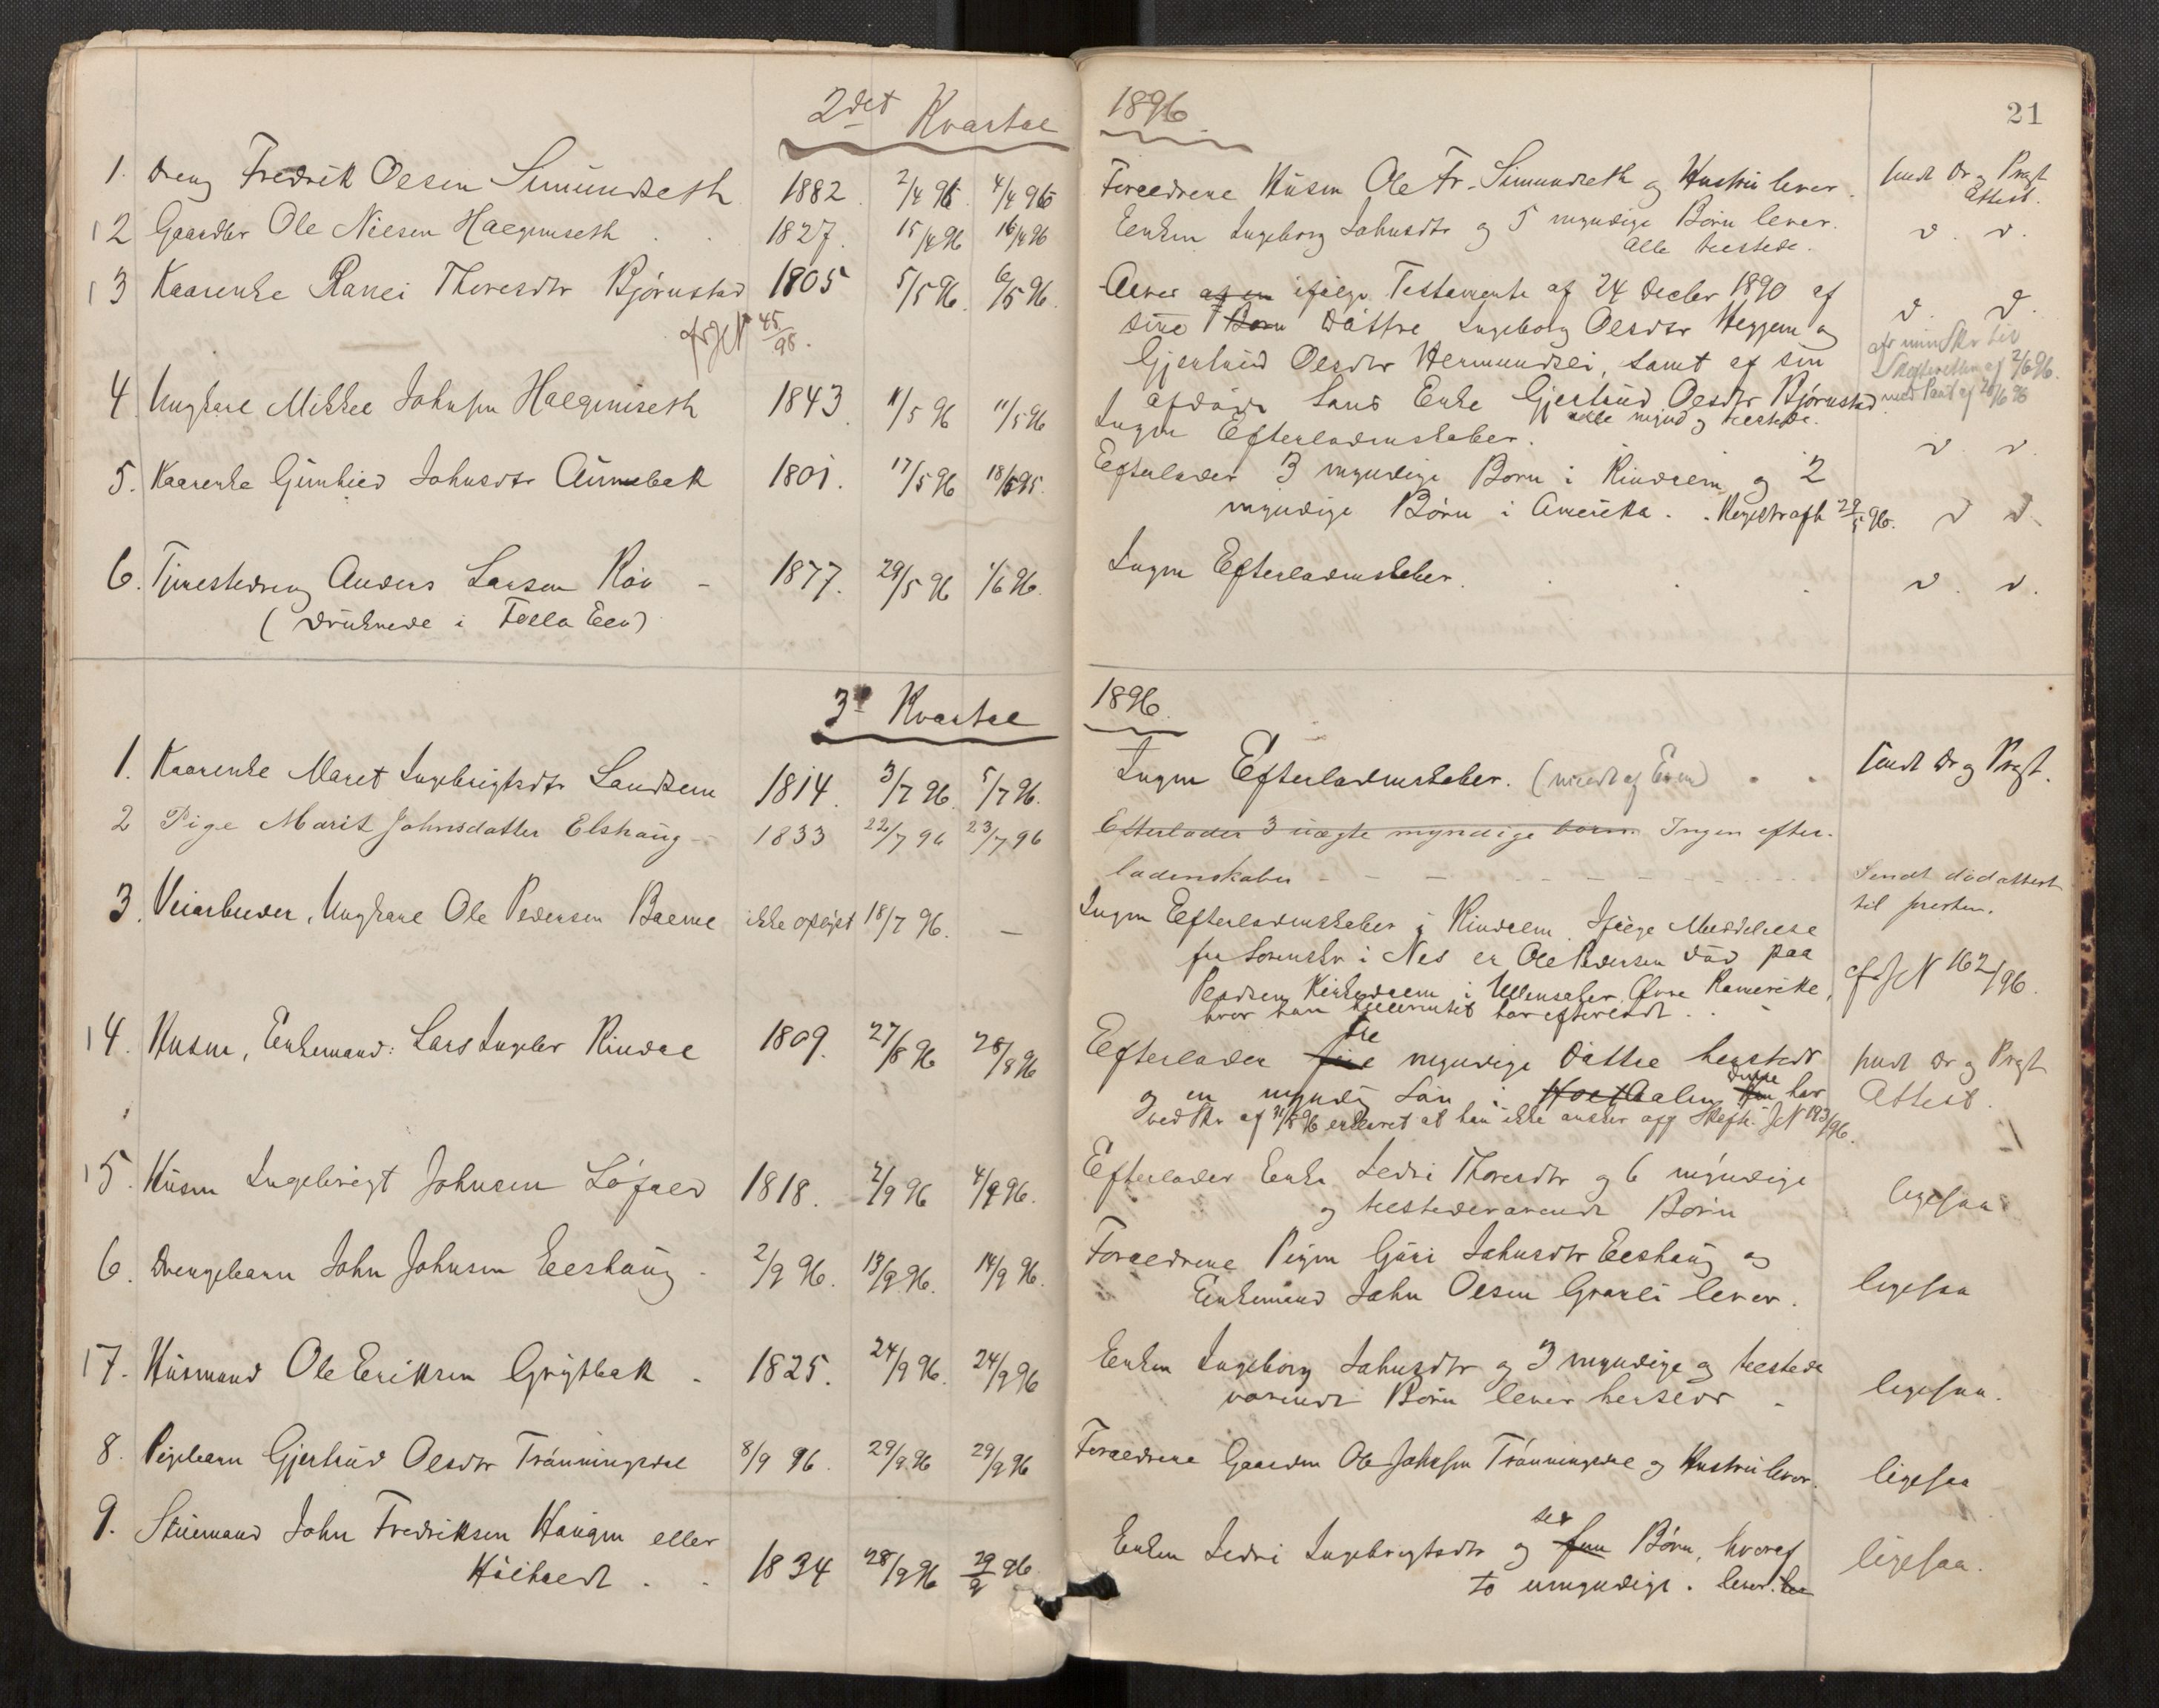 2det Kvartal 1896.
21
1. Dreng Fredrik Olsen Simundseth 1882 2/4 96. 4/4 96
Forældrene Husm Ole Fr. Simundseth og Hustru lever. sendt Dr og Prgt
Attest.
2 Gaardbr Ole Nilsen Halgunseth . . 1827. 15/4 96 16/4 96
Enken Ingeborg Johnsdtr og 5 myndige Børn lever. D. D.
alle tilstede.
3 Kaarenke Randi Thoresdtr Bjørnstad 1805 5/5 96. 6/5 96.
cfr JN 45/98.
Arves af en ifølge Testamente af 24 Decbr 1890 af D. D.
sine Børn Døttre Ingeborg Olsdtr Heggem og
Gjertrud Olsdtr Hermundsli, samt af sin
afdøde Søns Enke Gjertrud Olsdtr Bjørnstad
alle mynd og tilstede.
afr min Skr til
Skifteretten af 2/6 96.
4 Ungkarl Mikkel Johnsen Halgunseth 1843 11/5 96 11/5 96
Ingen Efterladenskaber. D D.
5. Kaarenke Gunhild Johnsdtr Aunebak 1801. 17/5 96 18/5 95.
Efterlader 3 myndige Børn i Rindalen og 2
myndige Børn i Amerika. . 28/5 96. D D.
6. Tjenestedreng Anders Larsen Røv - 1877. 29/5 96 1/6 96.
(druknede i Folla Elv)
Ingen Efterladenskaber. . . . D. D.
3de Kvartal 1896.
1. Kaarenke Maret Ingebrigtsdtr Landsem 1814. 3/7 96. 5/7 96.
Ingen Efterladenskaber. . . sendt Dr og Prgt.
2 Pige Marit Johnsdatter Elshaug - 1833 22/7 96 23/7 96
Efterlader 3 uægte myndige børn. Ingen efter-
ladenskaber - - - - - - Sendt dødattest
til presten.
3. Veiarbeider, Ungkarl Ole Pedersen Bolme ikke oplyst 18/7 96. -
Ingen Efterladenskaber i Rindalen. Ifølge Meddelelse
fra Sorenskr i Nes er Ole Pedersen død paa
i Ullensaker Øvre Romerike, cfr JN 162/96.
hvor han har efterladt . . -
4. Husm, Enkemand: Lars Ingebr Rindal 1809. 27/8 96 28/8 96
Efterlader fire tre myndige Døttre herstedt sendt Dr og Prgt
og en myndig Søn i Aalen Han denne har Attest.
ved Skr af 31/8 96 erklæret at han ikke ønsker off Skifte. JN 193/96.
5. Husm Ingebrigt Johnsen Løfald 1818. 2/9 96 4/9 96.
Efterlader Enke Sedri Thoresdtr og 6 myndige
og tilstedeværende Børn ligesaa
6. Drengebarn John Johnsen Elshaug - 2/9 96. 13/9 96. 14/9 96.
Forældrene Pigen Guri Johnsdtr Elshaug og
Enkemand John Olsen Granli lever. ligesaa
7. Husmand Ole Eriksen Grytbak - 1825. 24/9 96. 24/9 96
Enken Ingeborg Johnsdtr og 3 myndige og tilstede
værende Børn lever herstedt - ligesaa.
8. Pigebarn Gjertrud Olsdtr Trønningsdal 8/9 96. 29/9 96 29/9 96
Forældrene Gaardm Ole Johnsen Trønningsdal og Hustru lever. ligesaa
9. Stuemand John Fredriksen Haugen eller
Høiholdt . . 1834 28/9 96 29/9 96
Enken Sedri Ingebrigtsdtr og fem sex Børn, hvoraf
to umyndige. lever. her ligesaa.